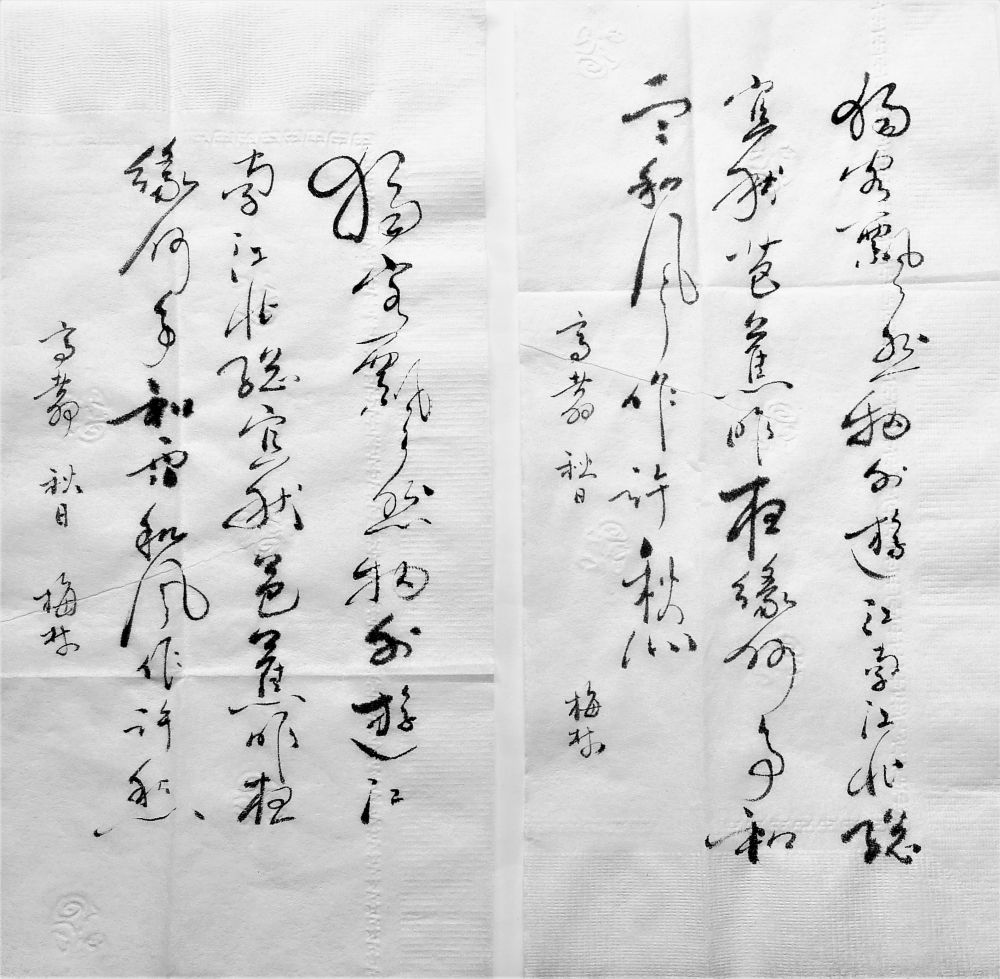 獨客飄然物外遊江南江北總
宜秋芭蕉昨夜緣何事和
雨和風作許愁
高翥 秋日 梅林
獨客飄然物外遊江
南江北總宜秋芭蕉昨夜
緣何事和雨和風作許愁
高翥 秋日 梅林